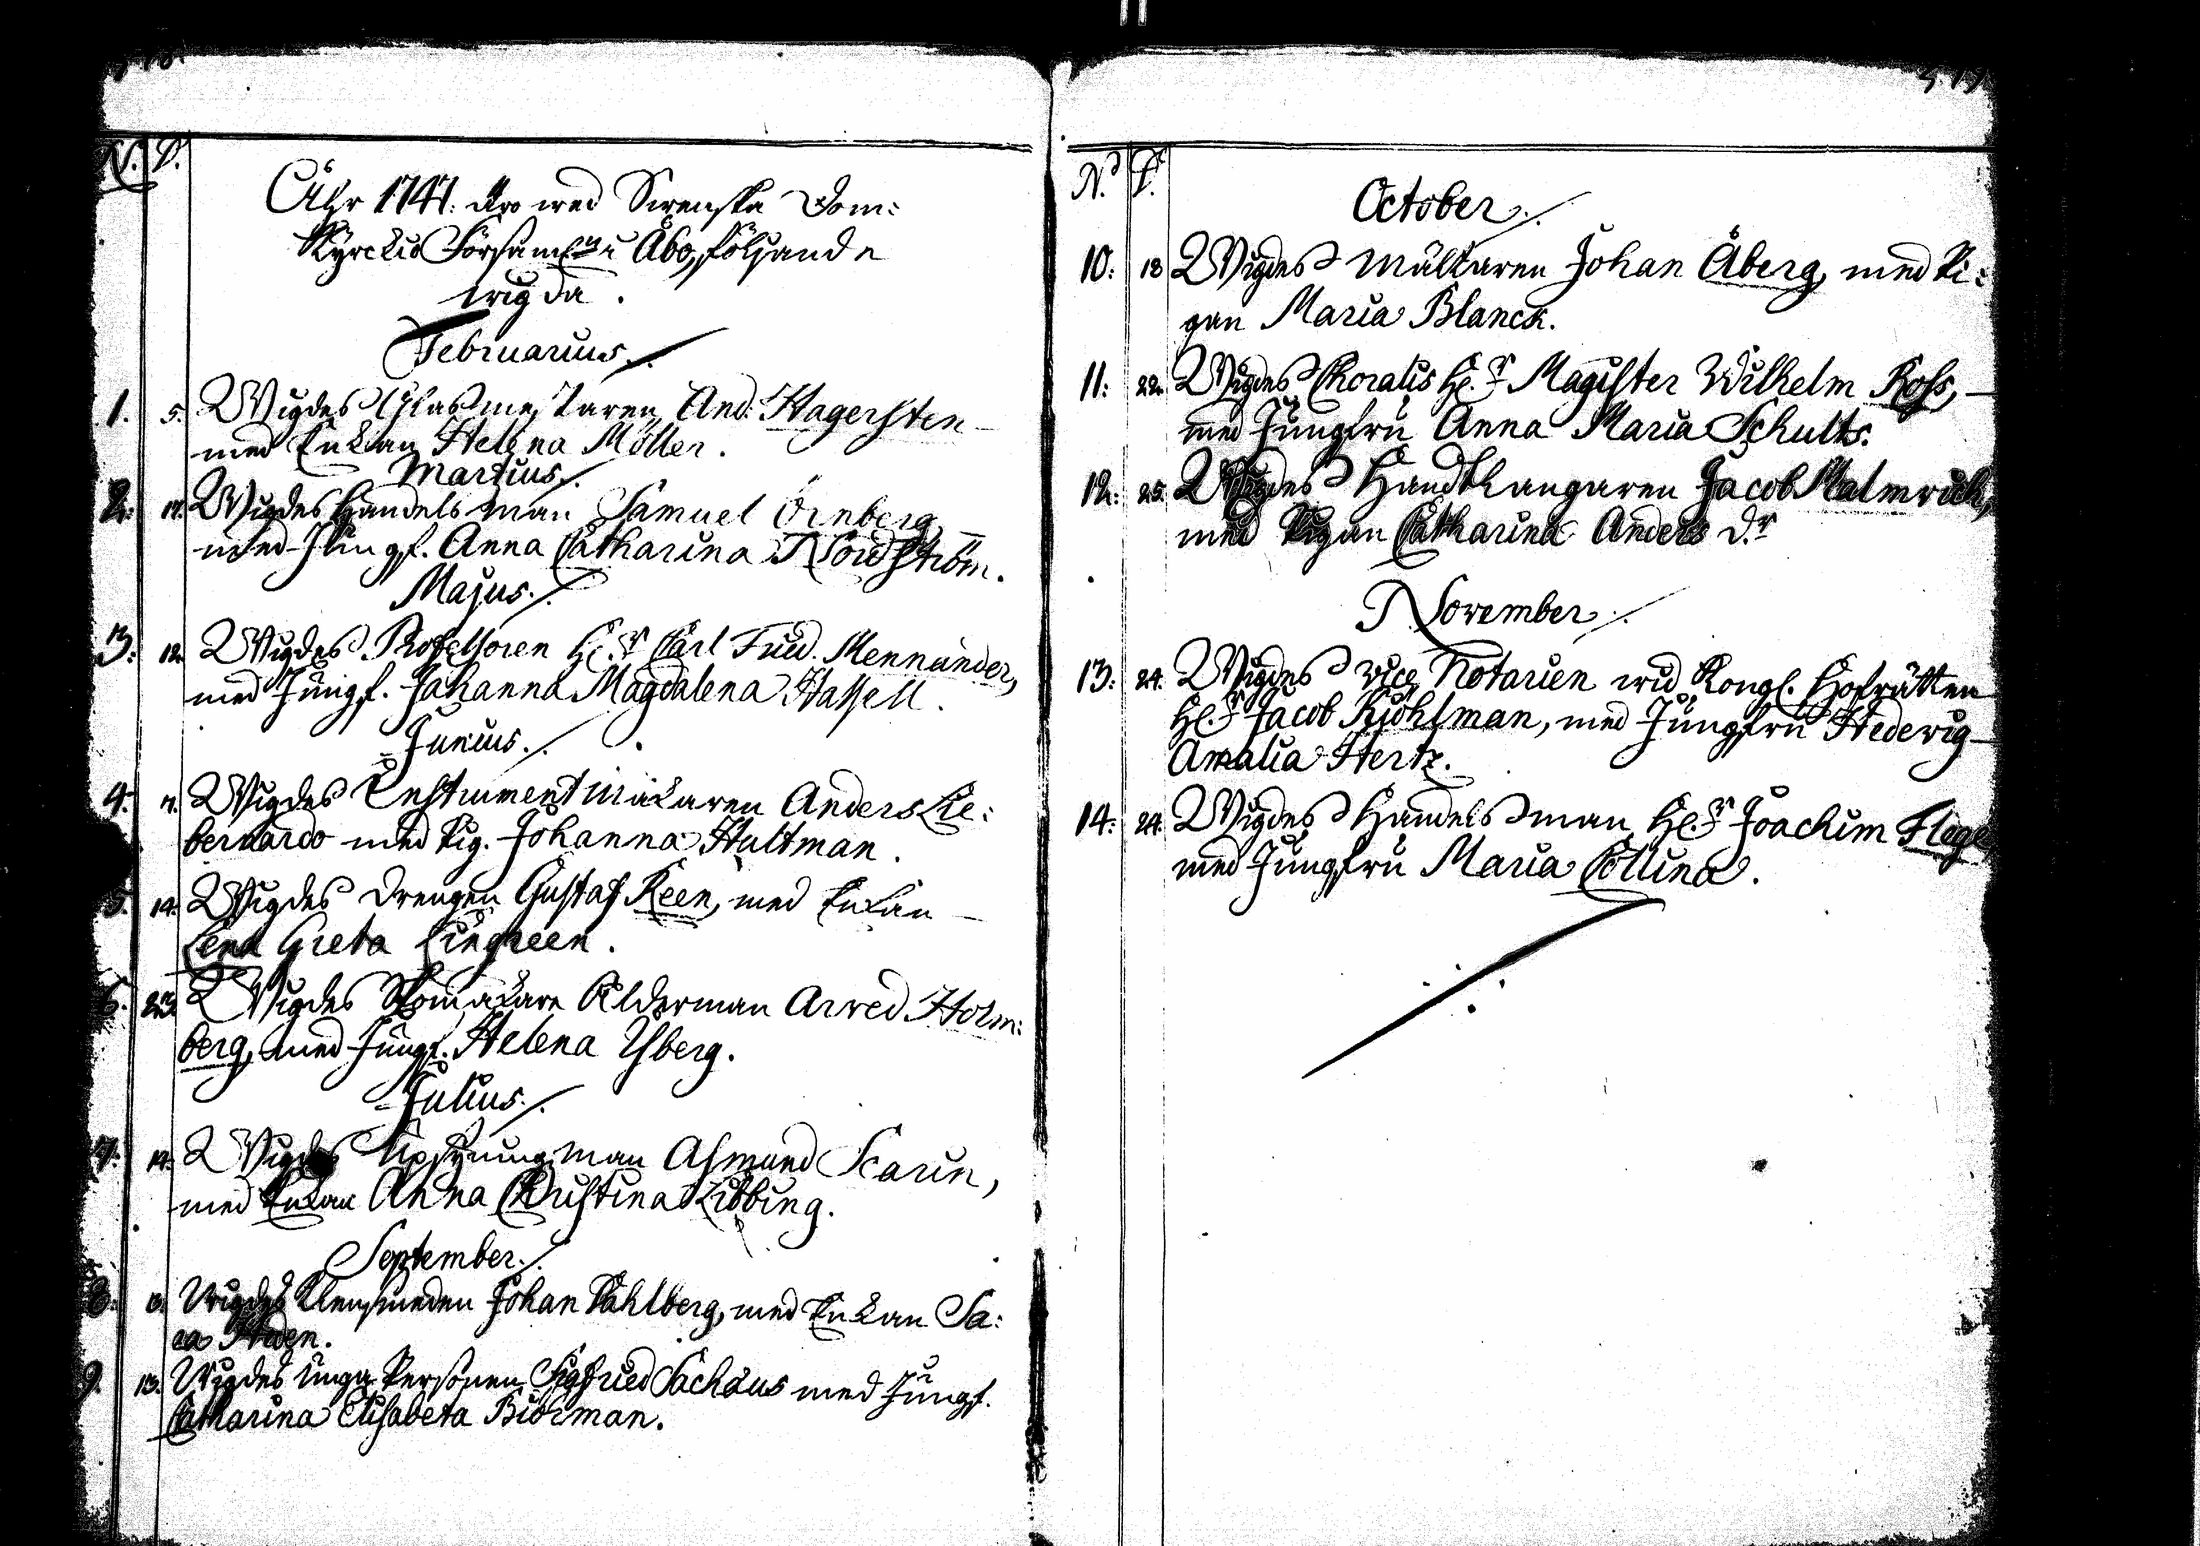 N. D.
Åhr 1747. äro wed Swenska Dom:
Kyrckio Församl: i Åbo, följande
wigda.
Februarius.
1. 5. Wigdes Glasmestaren And. Hagersten
med Enkan Helena Möller.
Martius.
2: 17. Wigdes Handelsman Samuel Örnberg,
med Jungf. Anna Catharina Nordström.
Majus.
3: 12. Wigdes Professoren H:r Carl Fried. Mennander,
med Jungf. Johanna Magdalena Hassell.
Junius.
4. 7. Wigdes Instrumentmakaren Anders Lie:
bernardo med Pig. Johanna Hultman.
5. 14. Wigdes Drengen Gustaf Keen, med Enkan
Lena Greta Lingreen.
6. 23. Wigdes Skomakare Ålderman Arved Holm:
berg, med Jungf. Helena Ysberg.
Julius.
7. 14. Wigdes Upsyningsman Asmund Scarin,
med Enkan Anna Christina Libbing.
September.
8: Wigdes Klensmeden Johan Påhlberg, med Enkan Sa:
ra Heden.
9. 13. Wigdes Unga Personen Sigfried Sachæus med Jungf.
Catharina Elisabeta Biörman.
N:o D.
October.
10: 18 Wigdes Mältaren Johan Åberg, med Pi:
gan Maria Blanck.
11: 22. Wigdes Choralis H:r Magister Wilhelm Ross,
med Jungfru Anna Maria Schults.
12: 25. Wigdes Handtlangaren Jacob Malmrick,
med Pigan Catharina Anders D:r
November
13: 24. Wigdes Vice Notarien wid Kongl. Hofrätten
H:r Jacob Kjöhlman, med Jungfru Hedewig
Amalia Hertz.
14: 24. Wigdes Handelsman H:r Joachim Flege
med Jungfru Maria Collina.